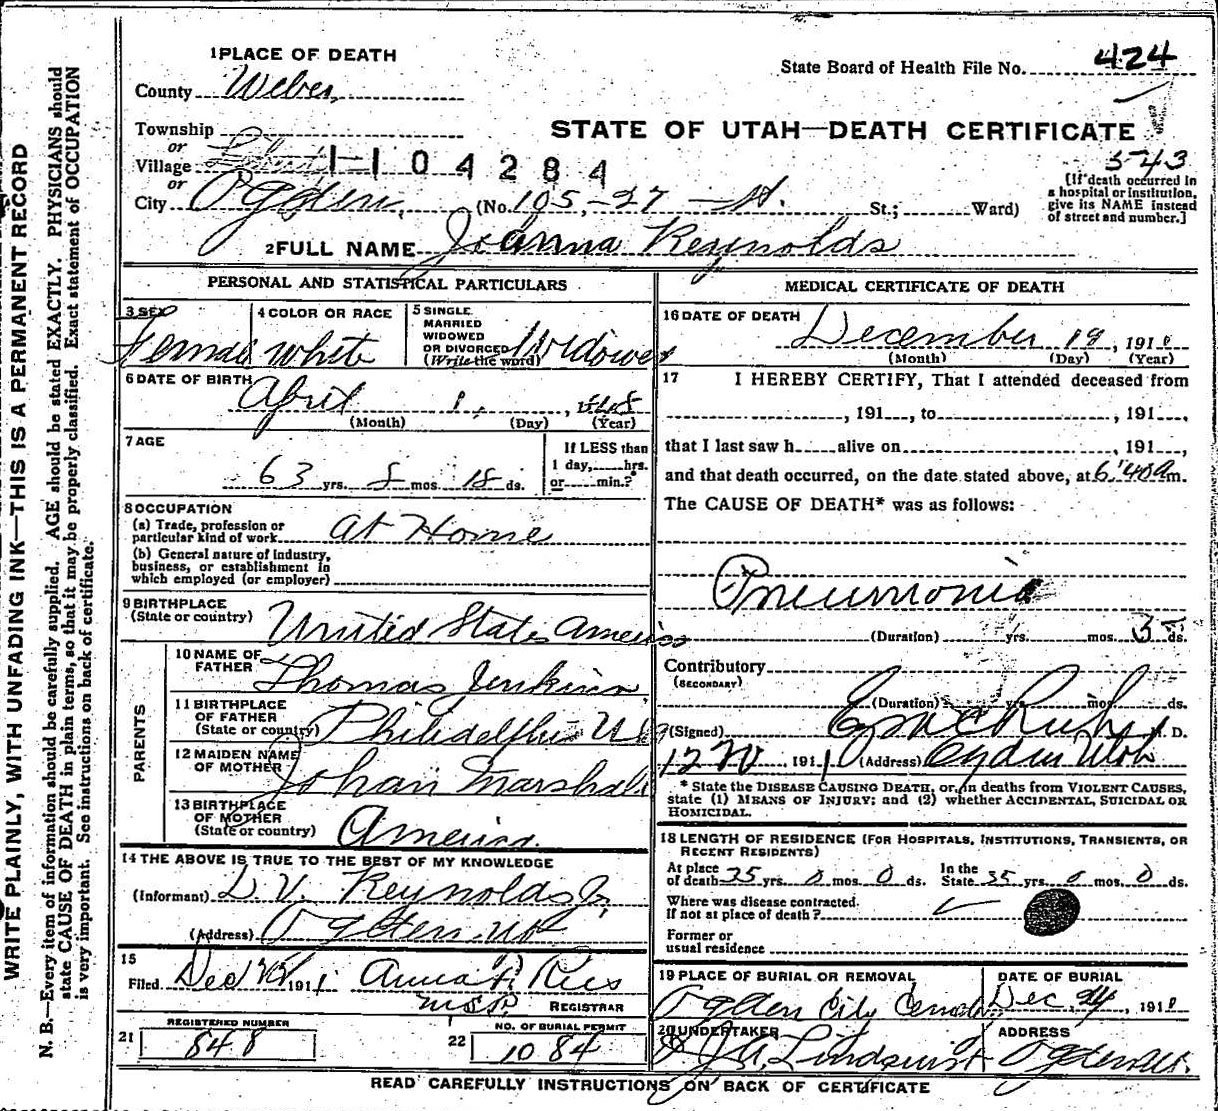 1 PLACE OF DEATH
County Weber
State Board of Health File No. 424
Township
or
Village
1-104284
STATE OF UTAH—DEATH CERTIFICATE
543
or
City Ogden, (No. 195-27 - St. St.; Ward)
[If death occurred in a hospital or institution, give its NAME instead of street and number.]
2 FULL NAME Joanna Reynolds
PERSONAL AND STATISTICAL PARTICULARS
3 SEX Female
4 COLOR OR RACE white
5 SINGLE MARRIED WIDOWED OR DIVORCED (Write the word) Widower
6 DATE OF BIRTH April 1, 
(Month) (Day) (Year)
7 AGE
63 yrs. 8 mos. 18 ds.
If LESS than 1 day, hrs. or min.?
8 OCCUPATION
(a) Trade, profession or particular kind of work at Home
(b) General nature of industry, business, or establishment in which employed (or employer)
9 BIRTHPLACE
(State or country) United States America
PARENTS
10 NAME OF FATHER Thomas Jenkins
11 BIRTHPLACE OF FATHER (State or country) Philidelphia
12 MAIDEN NAME OF MOTHER Johan Marshall
13 BIRTHPLACE OF MOTHER (State or country) America.
14 THE ABOVE IS TRUE TO THE BEST OF MY KNOWLEDGE
(Informant) D. V. Reynolds Jr.
(Address) Ogden Ut
15
Filed Dec 1911 Anna Ries
REGISTRAR
21 REGISTERED NUMBER 848
22 NO. OF BURIAL PERMIT 1084
MEDICAL CERTIFICATE OF DEATH
16 DATE OF DEATH December 19, 1911
(Month) (Day) (Year)
17 I HEREBY CERTIFY, That I attended deceased from
, 191 , to , 191 ,
that I last saw h alive on , 191 ,
and that death occurred, on the date stated above, at 6:40 a m.
The CAUSE OF DEATH* was as follows:
Pneumonia
(Duration) yrs. mos. 3 ds.
Contributory
(SECONDARY)
(Duration) yrs. mos. ds.
(Signed) M. D.
12 , 1911 (Address) Ogden Utah
* State the DISEASE CAUSING DEATH, or, in deaths from VIOLENT CAUSES, state (1) MEANS OF INJURY; and (2) whether ACCIDENTAL, SUICIDAL OR HOMICIDAL.
18 LENGTH OF RESIDENCE (FOR HOSPITALS, INSTITUTIONS, TRANSIENTS, OR RECENT RESIDENTS)
At place of death 35 yrs. 0 mos. 0 ds. In the State 35 yrs. 0 mos. 0 ds.
Where was disease contracted. If not at place of death?
Former or usual residence
19 PLACE OF BURIAL OR REMOVAL Ogden City
DATE OF BURIAL Dec. 24, 1911
20 UNDERTAKER Lindquist
ADDRESS Ogden Ut.
READ CAREFULLY INSTRUCTIONS ON BACK OF CERTIFICATE
WRITE PLAINLY, WITH UNFADING INK—THIS IS A PERMANENT RECORD
N. B.—Every item of information should be carefully supplied. AGE should be stated EXACTLY. PHYSICIANS should
state CAUSE OF DEATH in plain terms, so that it may be properly classified. Exact statement of OCCUPATION
is very important. See instructions on back of certificate.